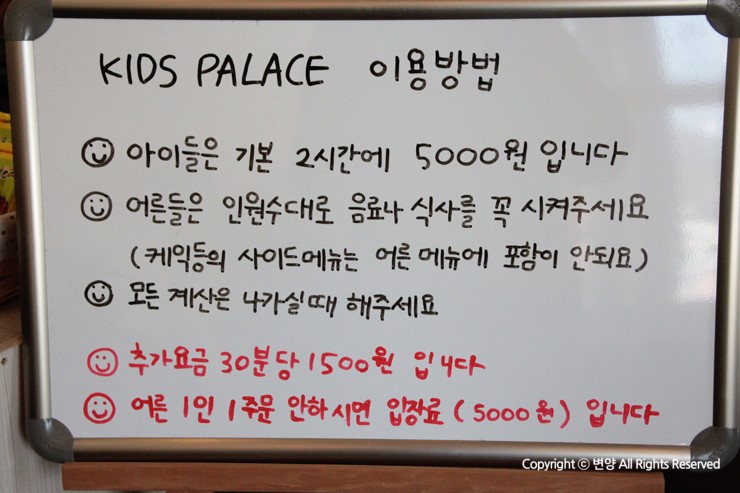 KIDS PALACE 이용방법
아이들은 기본 2시간에 5000원 입니다
어른들은 인원수대로 음료나 식사를 꼭 시켜주세요
(케익등의 사이드메뉴는 어른 메뉴에 포함이 안되요)
모든 계산은 나가실때 해주세요
추가요금 30분당 1500원 입니다
어른 1인 1주문 안하시면 입장료 (5000원) 입니다
Copyright © 변양 All Rights Reserved